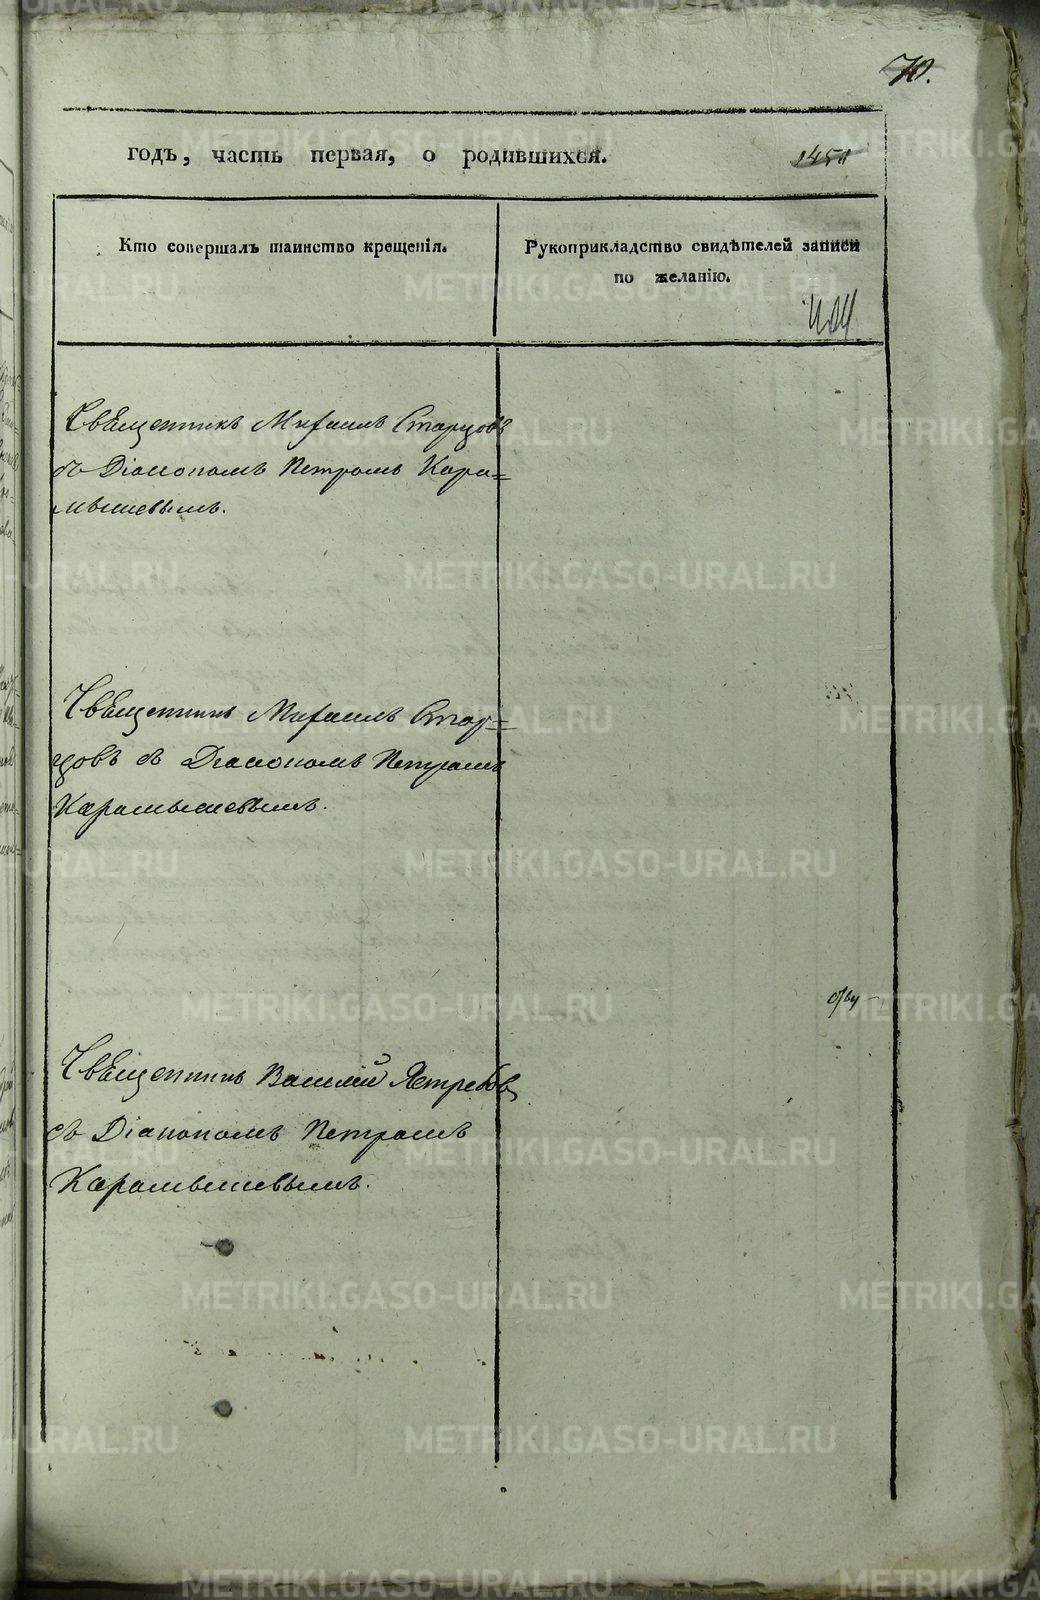 70.
годъ, часть первая, о родившихся.
Кто совершалъ таинство крещенія.
Рукоприкладство свидѣтелей записи
по желанію.
Священникъ Михаилъ Старцовъ
съ Діакономъ Петромъ Кара=
мышевымъ.
Священникъ Михаилъ Стар=
цовъ съ Діакономъ Петромъ
Карамышевымъ.
Священникъ Василій Ястребовъ
съ Діакономъ Петромъ
Карамышевымъ.
METRIKI.GASO-URAL.RU